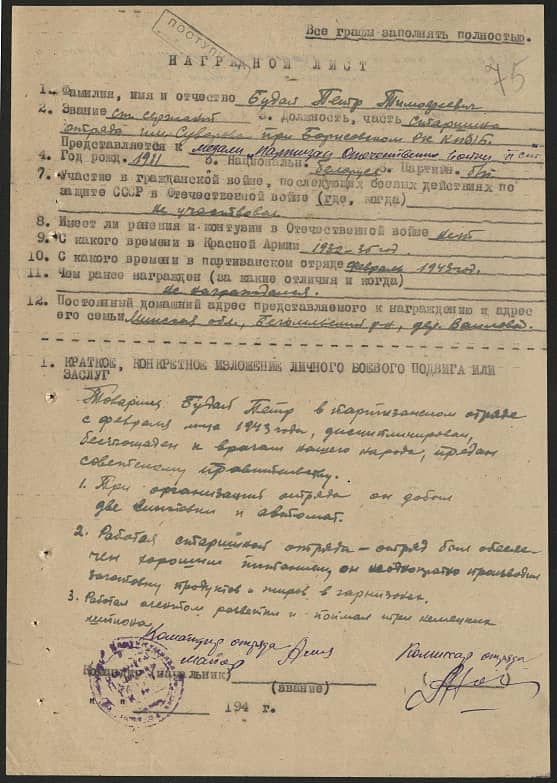 ПОСТУП
Все графы заполнять полностью.
75
НАГРАДНОЙ ЛИСТ
1. Фамилия, имя и отчество Будай Петр Тимофеевич
2. Звание ст. сержант 3. Должность, часть старшина
отряда им. Суворова при Борисовском РК КП(б)Б.
Представляется к медали Партизан Отечественной войны II ст.
4. Год рожд. 1911 5. Национальн. белорус 6. Партийн. б/п
7. Участие в гражданской войне, последующих боевых действиях по
защите СССР в Отечественной войне (где, когда)
не участвовал
8. Имеет ли ранения и контузии в Отечественной войне нет
9. С какого времени в Красной Армии 1932-35 год.
10. С какого времени в партизанском отряде февраль 1943 год.
11. Чем ранее награжден (за какие отличия и когда)
не награждался.
12. Постоянный домашний адрес представляемого к награждению и адрес
его семьи Минская обл., Бегомльский р-н, дер.
1. КРАТКОЕ, КОНКРЕТНОЕ ИЗЛОЖЕНИЕ ЛИЧНОГО БОЕВОГО ПОДВИГА ИЛИ
ЗАСЛУГ
Товарищ Будай Петр в партизанском отряде
с февраля м-ца 1943 года, дисциплинирован,
беспощаден к врагам нашего народа, предан
советскому правительству.
1. При организации отряда он добыл
две винтовки и автомат.
2. Работая старшиной отряда – отряд был обеспе-
чен хорошим питанием, он неоднократно производил
заготовку продуктов и жиров в гарнизонах.
3. Работал агентом разведки и поймал три немецких
шпиона.
Командир отряда
майор
Комиссар отряда
Командир (начальник)
(звание)
М. П.
194 г.